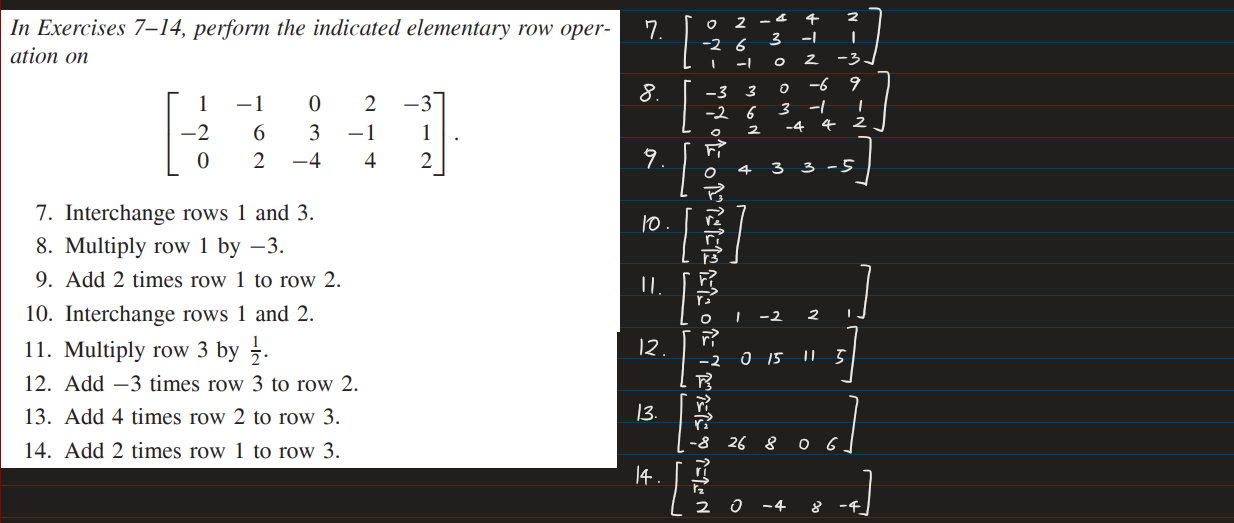 In Exercises 7–14, perform the indicated elementary row oper-
ation on
1 −1 0 2 −3
−2 6 3 −1 1
0 2 −4 4 2 .
7. Interchange rows 1 and 3.
8. Multiply row 1 by −3.
9. Add 2 times row 1 to row 2.
10. Interchange rows 1 and 2.
11. Multiply row 3 by 1/2.
12. Add −3 times row 3 to row 2.
13. Add 4 times row 2 to row 3.
14. Add 2 times row 1 to row 3.
7. 0 2 -4 4 2
-2 6 3 -1 1
1 -1 0 2 -3
8. -3 3 0 -6 9
-2 6 3 -1 1
0 2 -4 4 2
9. r⃗1
0 4 3 3 -5
r⃗3
10. r⃗2
r⃗1
r⃗3
11. r⃗1
r⃗2
0 1 -2 2 1
12. r⃗1
-2 0 15 11 5
r⃗3
13. r⃗1
r⃗2
-8 26 8 0 6
14. r⃗1
r⃗2
2 0 -4 8 -4